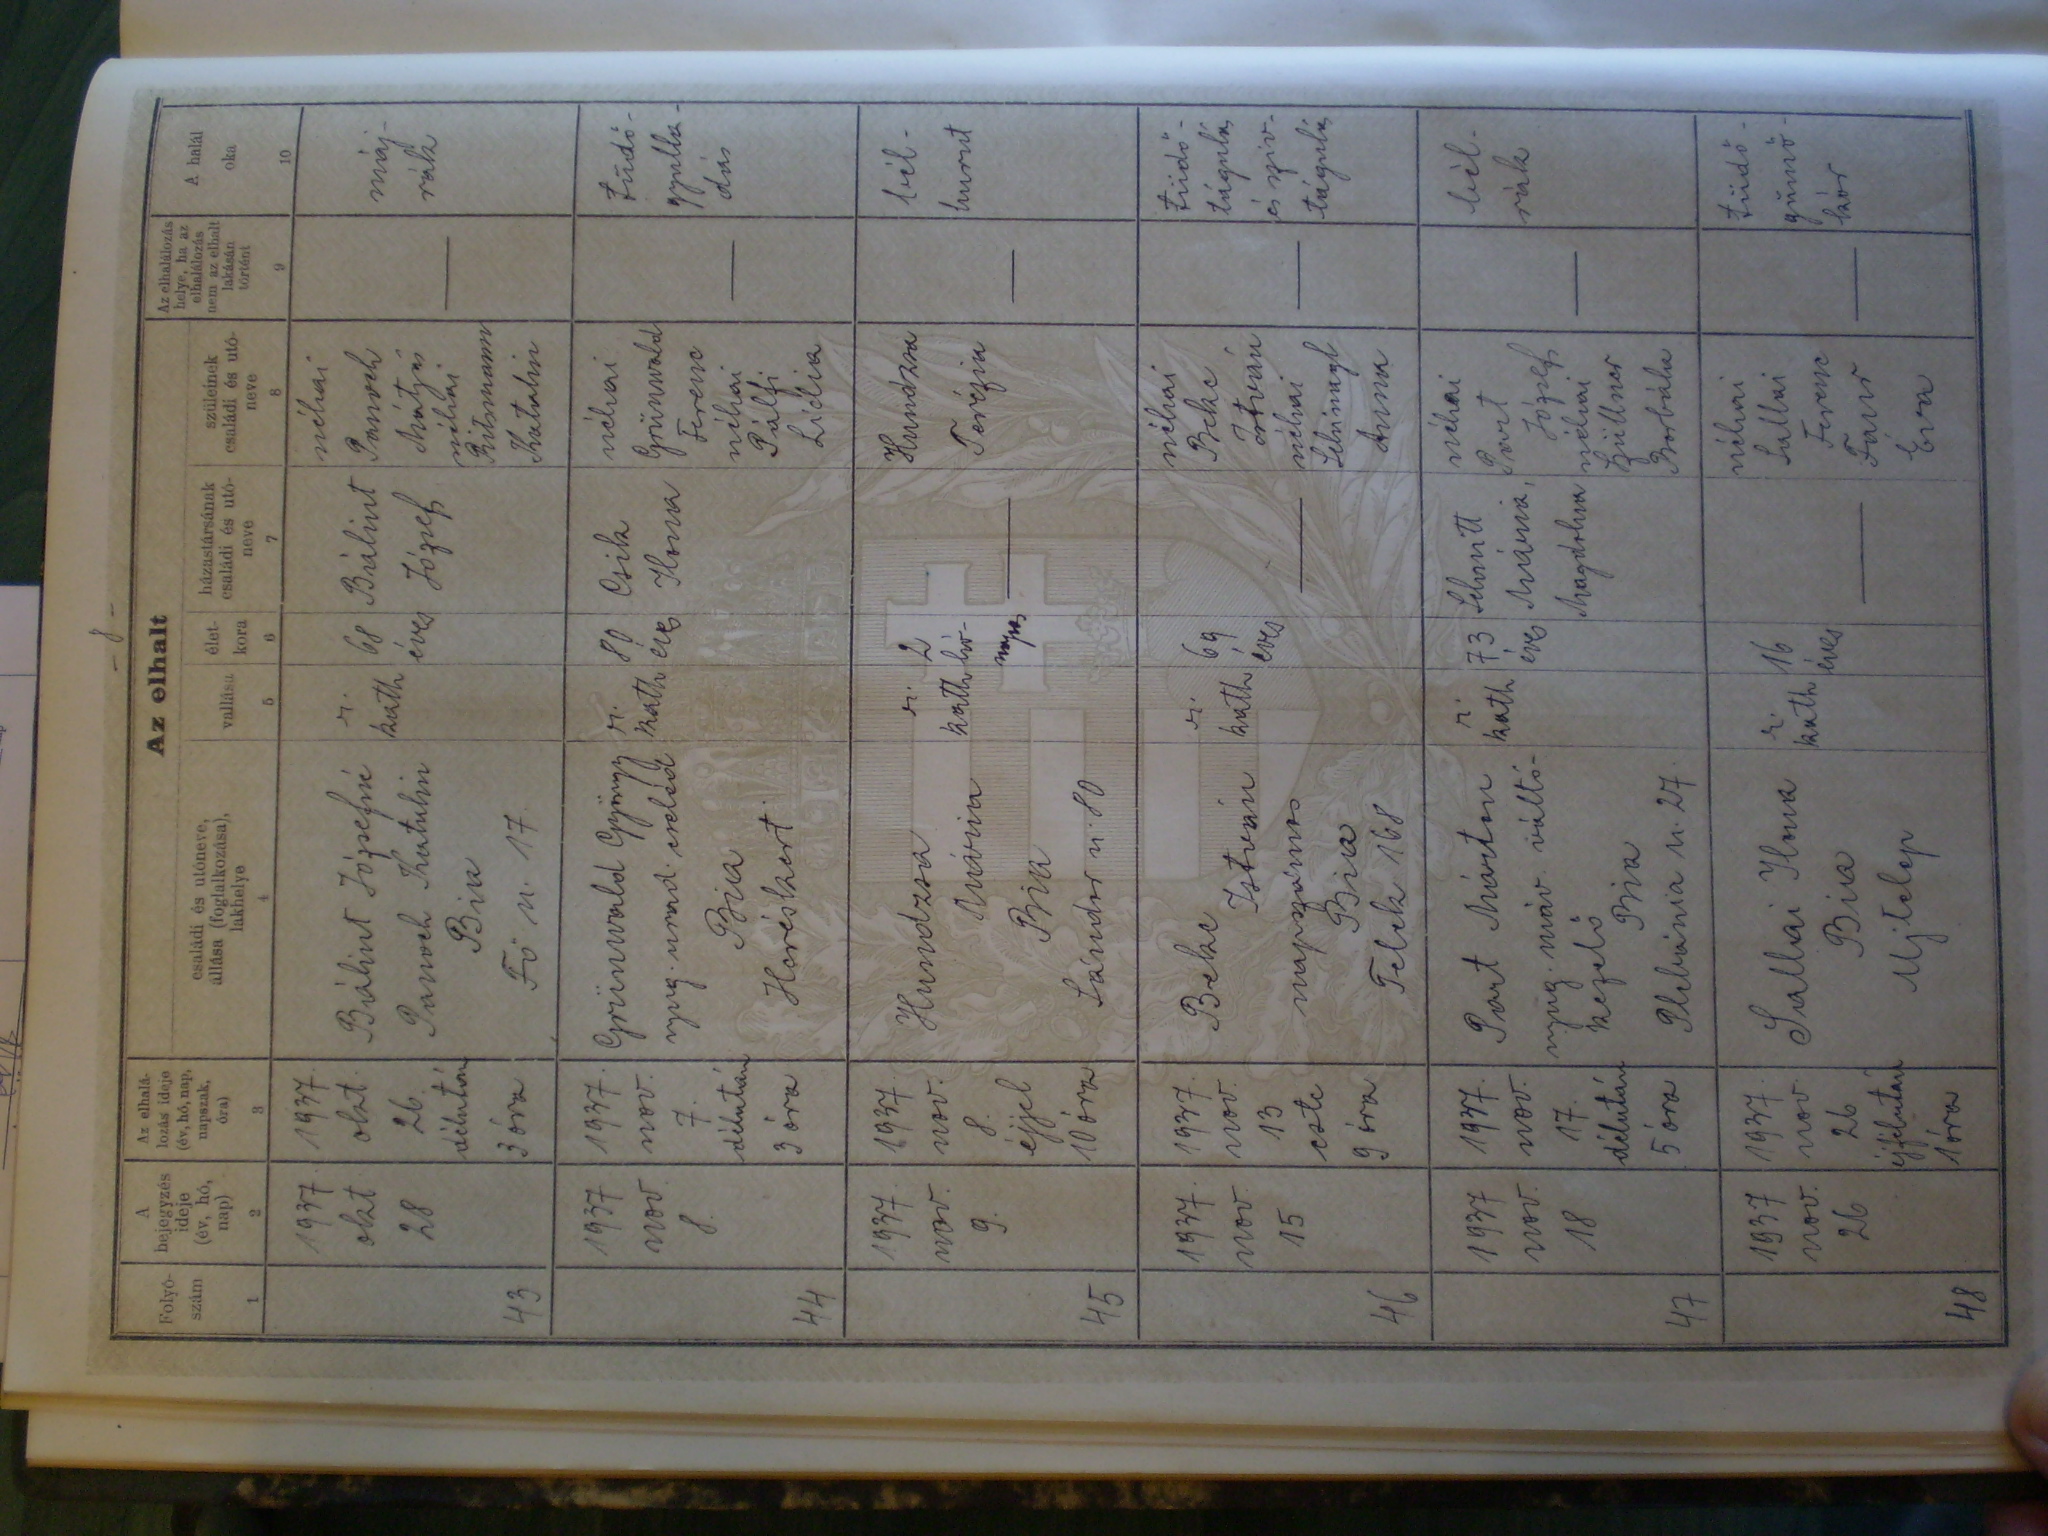 - 8 -
Az elhalt
Folyó-
szám
1
A
bejegyzés
ideje
(év, hó,
nap)
2
Az elhalá-
lozás ideje
(év, hó, nap,
napszak,
óra)
3
családi és utóneve,
állása (foglalkozása),
lakhelye
4
vallása
5
élet-
kora
6
házastársának
családi és utó-
neve
7
szüleinek
családi és utó-
neve
8
Az elhalálozás
helye, ha az
elhalálozás
nem az elhalt
lakásán
történt
9
A halál
oka
10
43
1937.
okt
28
1937.
okt.
26.
délután
3 óra
Bálint Józsefné
Panoch Katalin
Bia
Fő u. 17.
r.
kath
68
éves
Bálint
József
néhai
Panoch
Mátyás
néhai
Katalin
—
máj-
rák
44
1937
nov.
8.
1937.
nov.
7.
délután
3 óra
Grünwald György
nyug. urad. cseléd
Bia
r.
kath
80
éves
Csik
Ilona
néhai
Grünwald
Ferenc
néhai
Pálfi
Lidia
—
tüdő-
gyulla-
dás
45
1937.
nov.
9.
1937.
nov.
8.
éjjel
10 óra
Hundzsa
Mária
Bia
Sándor u. 80
r.
kath
2
hó-
napos
—
Hundzsa
Terézia
—
bél-
hurut
46
1937.
nov.
15
1937.
nov.
13
este
9 óra
Beke
István
napszámos
Bia
Telek 168
r.
kath
69
éves
—
néhai
Beke
István
néhai
Anna
—
tüdő-
tágulás
és sziv-
tágulás
47
1937
nov.
18
1937.
nov.
17.
délután
5 óra
Part Márton
nyug. máv. váltó-
kezelő
Bia
Plebánia u. 27.
r.
kath
73
éves
Schmitt
Mária,
Magdolna
néhai
Part
József
néhai
Borbála
—
bél-
rák
48
1937
nov.
26
1937.
nov.
26
éjfélután
1 óra
Sallai Ilona
Bia
Ujtelep
r.
kath
16
éves
—
néhai
Sallai
Ferenc
Éva
—
tüdő-
gümő-
kór